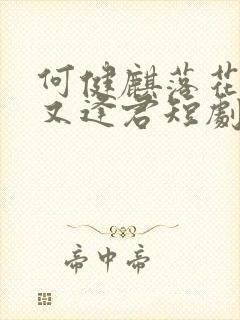 何健麒落花
又逢君短劇
帝中帝